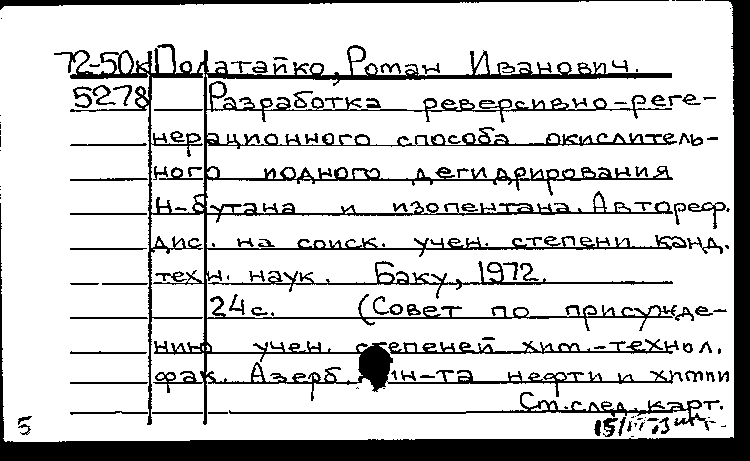 72-50к Полатайко, Роман Иванович.
5278 Разработка реверсивно-реге-
нерационного способа окислитель-
ного иодного дегидрирования
н-бутана и изопентана. Автореф.
дис. на соиск. учен. степени канд.
техн. наук. Баку, 1972.
24 с. (Совет по присужде-
нию учен. степеней хим.-технол.
фак. Азерб. ин-та нефти и химии
См. след. карт.
5